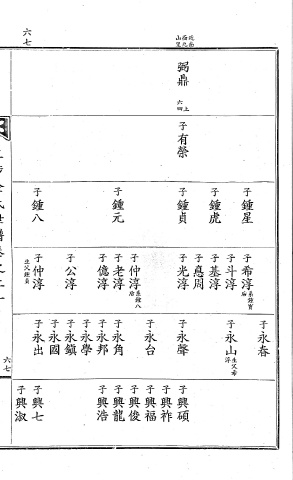 六七
弼鼎
六四
上
子有榮
子鍾星
子鍾虎
子鍾貞
子鍾元
子鍾八
子希淳
子斗淳
子基淳
子惪周
子光淳
子仲淳
系鍾八后
子老淳
子億淳
子公淳
子仲淳
生父鍾貞
子永春
子永山
生父希淳
子永聲
子永台
子永角
子永邦
子永學
子永鎭
子永國
子永出
子興碩
子興祚
子興福
子興俊
子興龍
子興浩
子興七
子興淑
六七